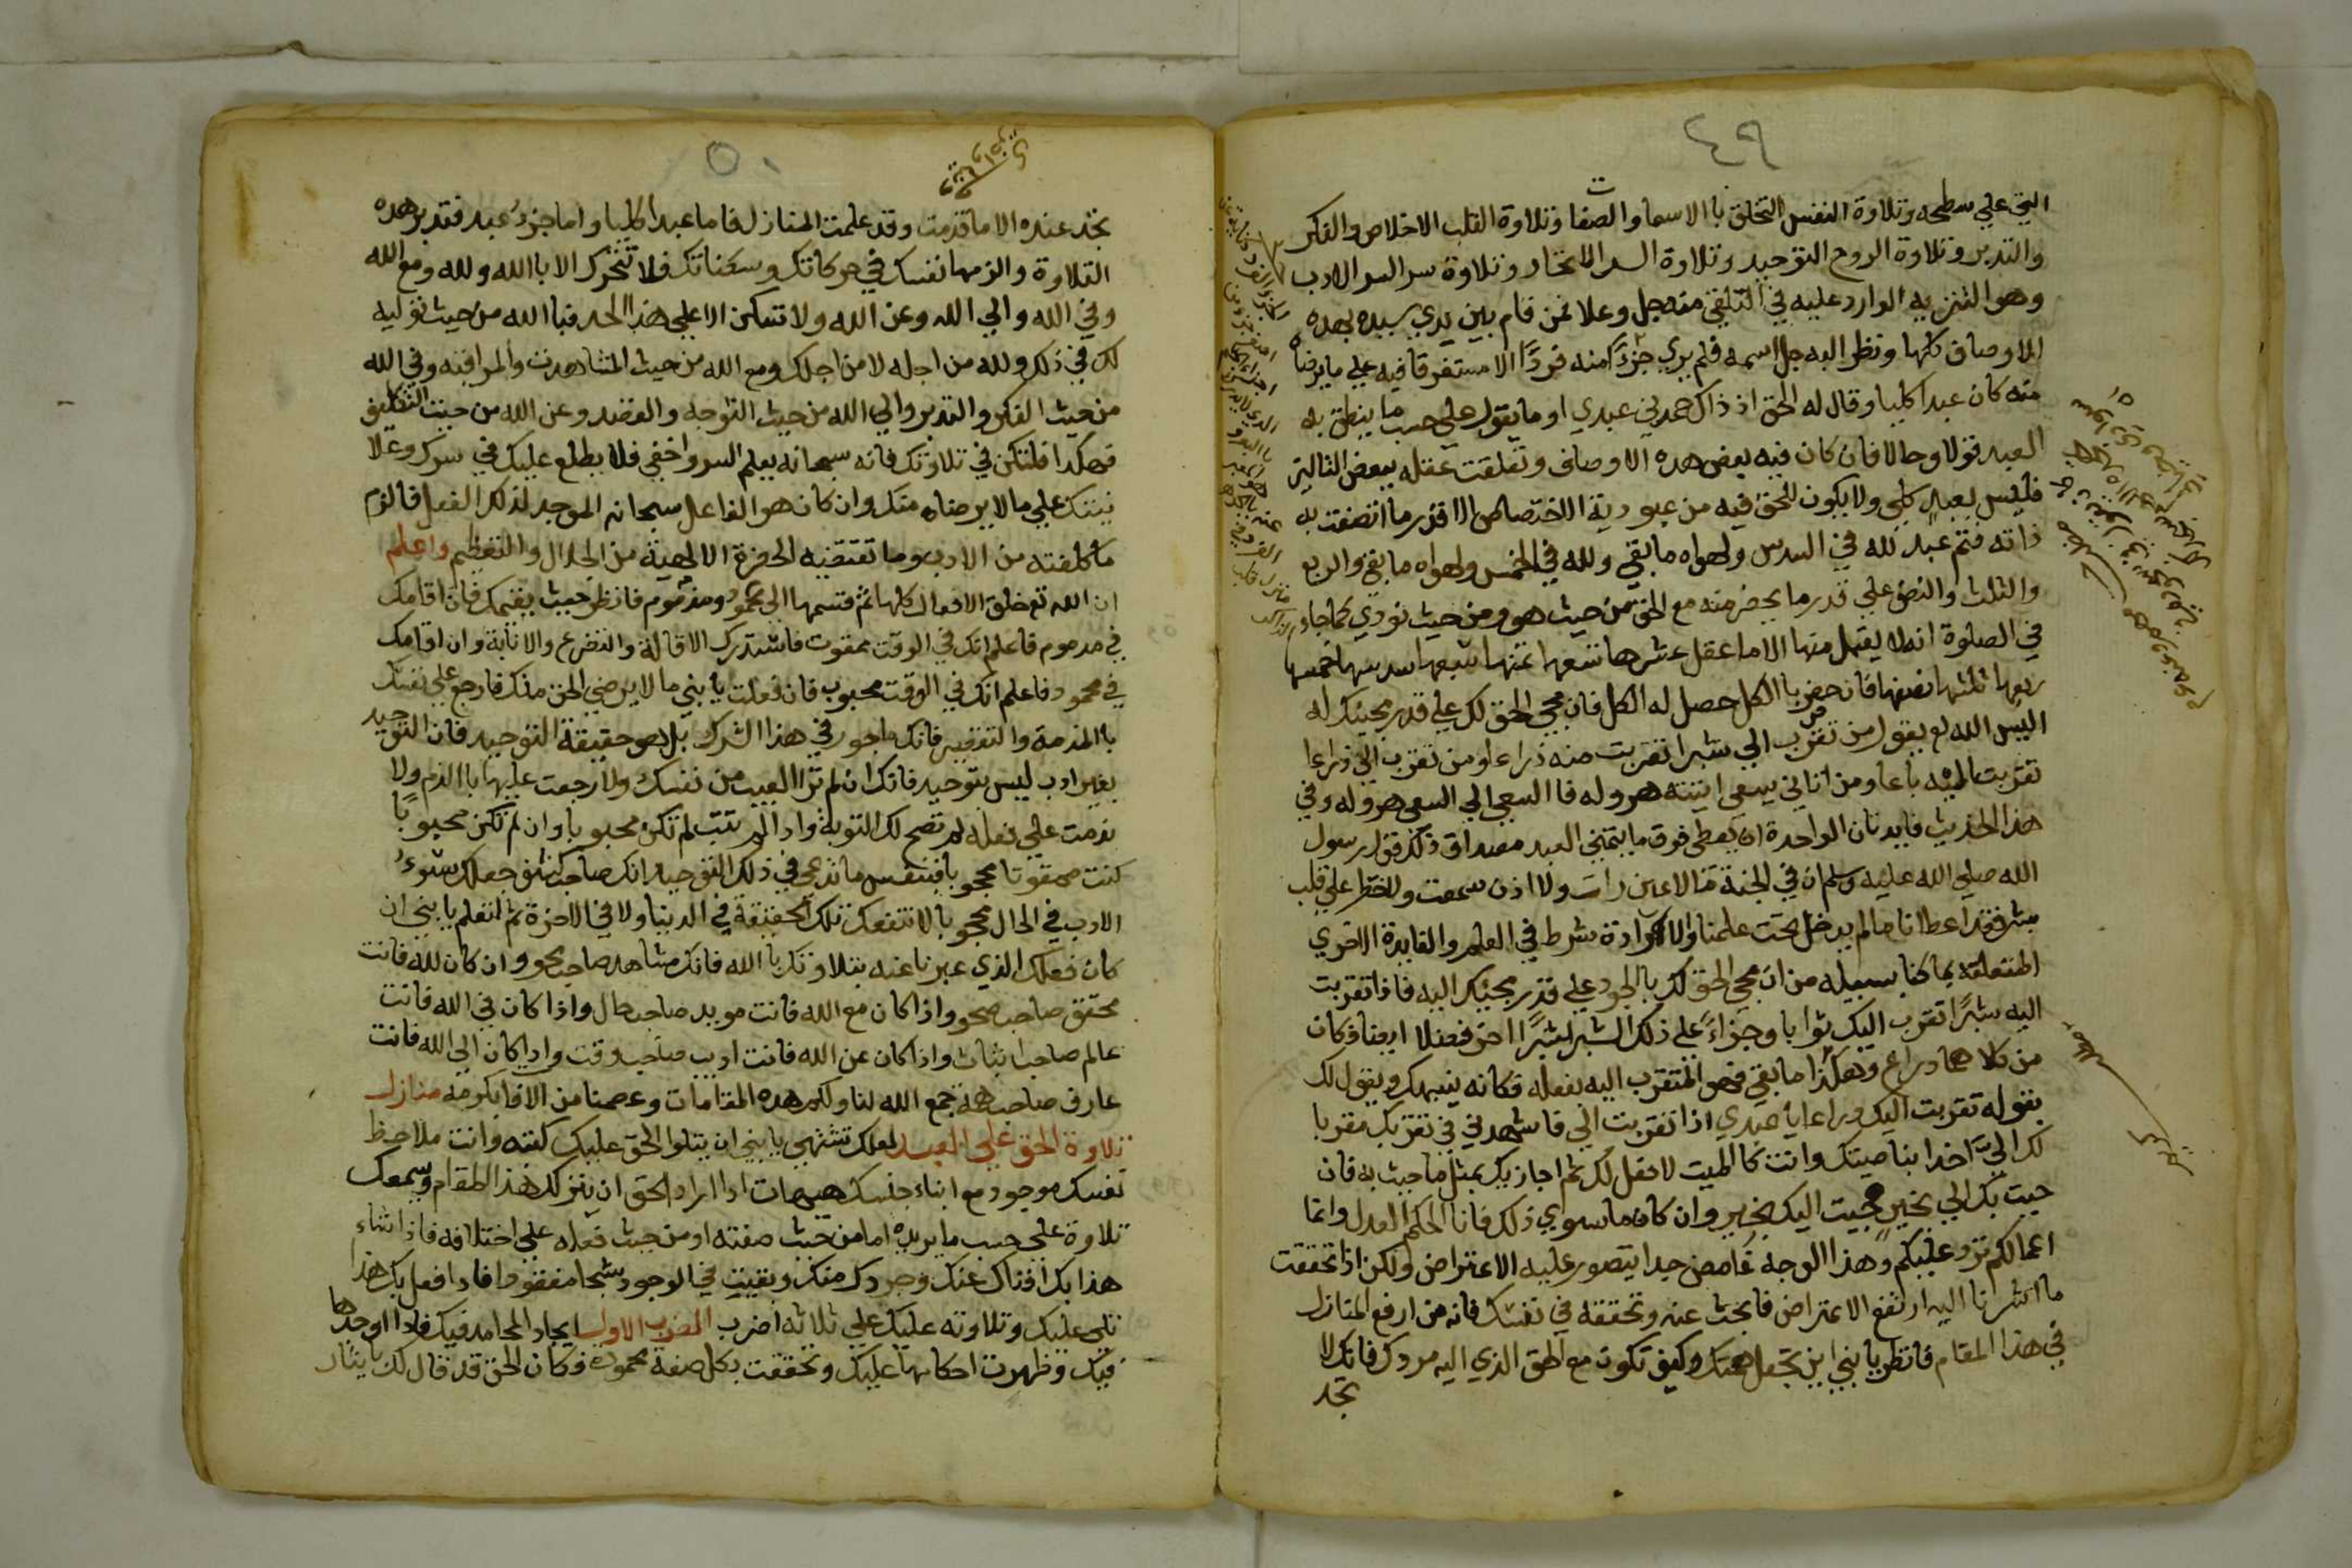 ٤٩
التي علي سطحه وتلاوة النفس التخلق باالاسما والصفات وتلاوة القلب الاخلاص والفكر
والتدبر وتلاوة الروح التوحيد وتلاوة السر الاتحاد وتلاوة سر السر الادب
وهو التنزيه الوارد عليه في التلقي منه جل وعلا فمن قام بين يدي سيده بهده
الاوصاف كلها ونظر اليه جل اسمه فلم يري جزءًا منه فردًا الا مستغرقا فيه علي ما يرضاه
منه كان عبدا كليا وقال له الحق اذ ذاك حمدني عبدي او ما يقول علي حسب ما ينطق به
العبد قولا وحالا فان كان فيه بعض هده الاوصاف وتعلقت عقله ببعض التاليه
فليس بعبد كلي ولا يكون للحق فيه من عبودية الاختصاص الا قدر ما اتصفت به
ذاته فثم عبد لله في السدس ولهواه ما بقي ولله في الخمس ولهواه ما بقي والربع
والثلث والنصف علي قدر ما يحضر منه مع الحق من حيث هو ومن حيث نودي كما جاء
في الصلوة انه لا يقبل منها الا ما عقل عشرها تسعها ثمنها سبعها سدسها خمسها
ربعها ثلثها نصفها فان حضر باالكل حصل له الكل فان مجي الحق لك علي قدر مجيئك له
اليس الله تع يقول من تقرب الي شبرا تقربت منه ذراعا ومن تقرب الي ذراعا
تقربت اليه باعا ومن اتاني يسعي اتيته هروله فاالسعي الي السعي هروله وفي
هذا الحديث فايدتان الواحدة ان يعطي فوق ما يتمني العبد مصداق ذلك قول رسول
الله صلي الله عليه وسلم ان في الجنة ما لا عين رات ولا اذن سمعت ولا خطر علي قلب
بشر فقد اعطانا ما لم يدخل تحت علمنا والارادة شرط في العلم والفايدة الاخري
المتعلقة بما كنا بسبيله من ان مجي الحق لك بالجود علي قدر مجيئك اليه فاذا تقربت
اليه شبرًا تقرب اليك ثوابا وجزاءً علي ذلك الشبر لشبرًا اخر فضلا ايضا فكان
من كلاهما دراع وهكذا ما بقي فهو المتقرب اليه بفعله فكانه ينبهك ويقول لك
بقوله تقربت اليك دراعا يا عبدي اذا تقربت الي فاشهدني في تقربك مقربا
لك الي اخدا بناصيتك وانت كالميت لا فعل لك ثم اجازيك بمثل ما جيت به فان
جيت بك الي بخير جيت اليك بخير وان كان ما سوي ذلك فانا الحكم العدل وانما
اعمالكم ترد عليكم وهذا الوجه غامض جدا يتصور عليه الاعتراض ولكن اذا تحققت
ما اشرنا اليه ارتفع الاعتراض فابحث عنه وتحققه في نفسك فانه من ارفع المنازل
في هذا المقام فانظر يا بني اين تجعل همتك وكيف تكون مع الحق الذي اليه مردك فانك لا
تجد
٥٠
تجد عنده الا ما قدمت وقد علمت المنازل فاما عبدا كليا واما جزءُ عبد فتدبر هده
التلاوة والزمها نفسك في حركاتك وسكناتك فلا تتحرك الا باالله ولله ومع الله
وفي الله والي الله وعن الله ولا تسكن الا علي هذا الحد فباالله من حيث توليه
لك في ذلك ولله من اجله لا من اجلك ومع الله من حيث المشاهدة والمراقبه وفي الله
من حيث الفكر والتدبر والي الله من حيث التوجه والقصد وعن الله من حيث التكليف
فهكدا فلتكن في تلاوتك فانه سبحانه يعلم السر واخفي فلا يطلع عليك في سرك وعلا
نيتك علي ما لا يرضاه منك وان كان هو الفاعل سبحانه الموجد لذلك الفعل فالزم
ما كلفته من الادب وما تقتضيه الحضرة الالهية من الجلال والتعظيم واعلم
ان الله تع خلق الافعال كلها ثم قسمها الي محمود ومذموم فانظر حيث يقيمك فان اقامك
في مدموم فاعلم انك في الوقت ممقوت فاستدرك الاقالة والتضرع والانابة وان اقامك
في محمود فاعلم انك في الوقت محبوب فان فعلت يا بني ما لا يرضي الحق منك فارجع علي نفسك
باالمذمة والتقصير فانك ماجور في هذا الشرك بل هو حقيقة التوحيد فان التوحيد
بغير ادب ليس بتوحيد فانك ان لم تر العيب من نفسك ولا رجعت عليها باالذم ولا
ندمت علي فعله لم تصح لك التوبة واذا لم تتب لم تكن محبوبا وان لم تكن محبوبًا
كنت ممقوتا محجوبا فتنفس ما تدعي في ذلك التوحيد انك صاحب كشف جعلك سوءُ
الادب في الحال محجوبا لا تنفعك تلك الحقيقة في الدنيا ولا في الاخرة ثم لتعلم يا بني ان
كان فعلك الذي عبرنا عنه بتلاوتك باالله فانك مشاهد صاحب محو وان كان لله فانت
محقق صاحب صحو واذا كان مع الله فانت مويد صاحب حال واذا كان في الله فانت
عالم صاحب اثبات واذا كان عن الله فانت اديب صاحب وقت واذا كان الي الله فانت
عارف صاحب همة جمع الله لنا ولكم هده المقامات وعصمنا من الافا بكرمه منازل
تلاوة الحق علي العبد لعلك تشتهي يا بني ان يتلوا الحق عليك كتبه وانت ملاحظ
نفسك موجود مع ابناء جنسك هيهات اذا اراد الحق ان ينزلك هذا المقام ويسمعك
تلاوة علي حسب ما يريده اما من حيث صفته او من حيث فعله علي اختلافه فاذا شاء
هذا بك افناك عنك وجردك منك وبقيت في الوجود شبحا مفقودا فاذا فعل بك هذا
تلي عليك وتلاوته عليك علي ثلاثه اضرب الضرب الاول ايجاد المحامد فيك فاذا اوجدها
فيك وظهرت احكامها عليك وتحققت بكل صفة محموده فكان الحق قد قال لك يا